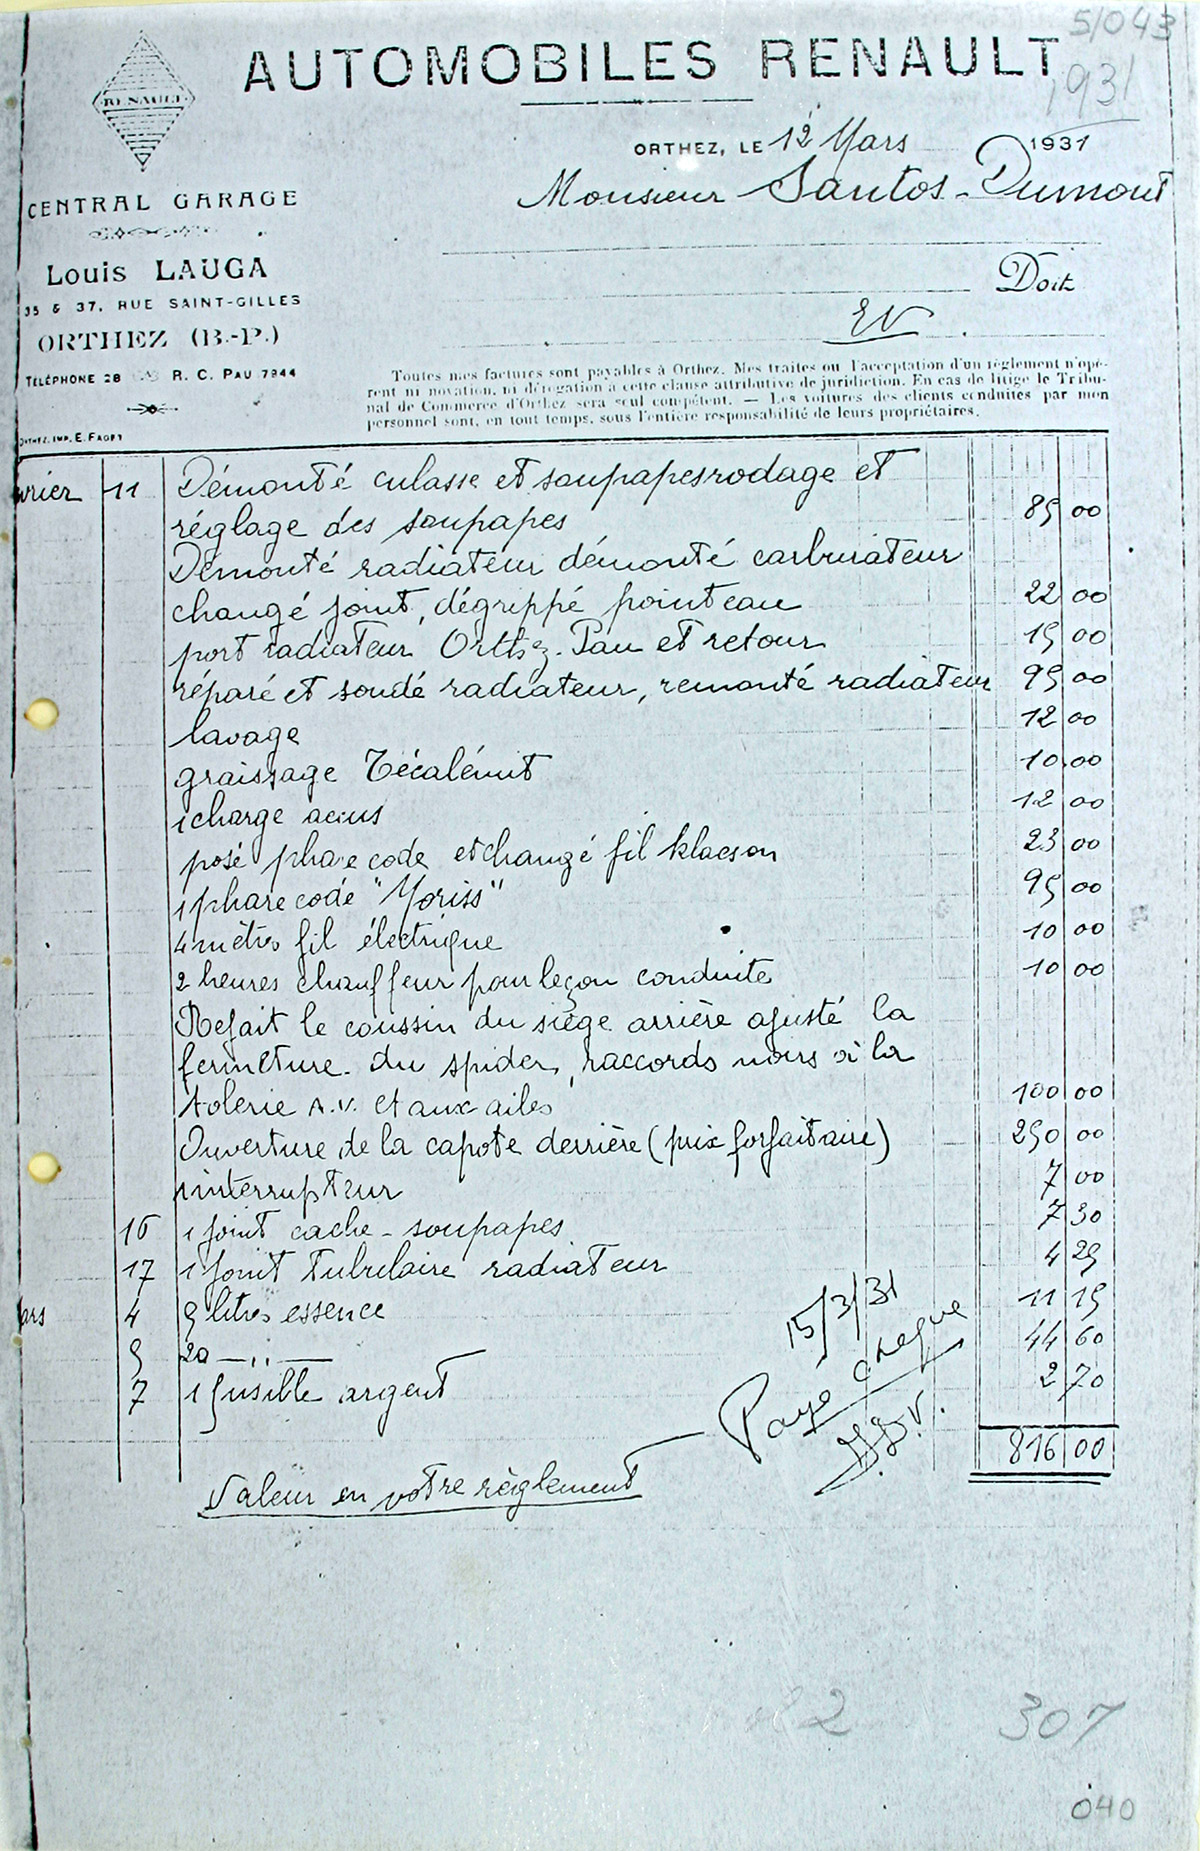 5/043
1931
AUTOMOBILES RENAULT
RENAULT
ORTHEZ, LE 12 Mars 1931
Monsieur Santos-Dumont
CENTRAL GARAGE
Louis LAUGA
35 & 37, RUE SAINT-GILLES
ORTHEZ (B.-P.)
TÉLÉPHONE 28 R. C. PAU 7944
Doit
EV
Toutes mes factures sont payables à Orthez. Mes traites ou l'acceptation d'un règlement n'opè-
rent ni novation, ni dérogation à cette clause attributive de juridiction. En cas de litige le Tribu-
nal de Commerce d'Orthez sera seul compétent. — Les voitures des clients conduites par mon
personnel sont, en tout temps, sous l'entière responsabilité de leurs propriétaires.
ORTHEZ, IMP. E. FAGET
vrier 11 Démonté culasse et soupapes rodage et
réglage des soupapes 85 00
Démonté radiateur démonté carburateur
changé joint, dégrippé pointeau 22 00
port radiateur Orthez-Pau et retour 15 00
réparé et soudé radiateur, remonté radiateur 95 00
lavage 12 00
graissage Técalémit 10 00
1 charge accus 12 00
posé phare code et changé fil klacson 23 00
1 phare code "Yoriss" 95 00
4 mètres fil électrique 10 00
2 heures chauffeur pour leçon conduite 10 00
Refait le coussin du siège arrière ajusté la
fermeture du spider, raccords noirs à la
tolerie A.V. et aux ailes 100 00
Ouverture de la capote derrière (prix forfaitaire) 250 00
1 interrupteur 7 00
16 1 joint cache-soupapes 7 30
17 1 joint tubulaire radiateur 4 25
ars 4 5 litres essence 11 15
5 20 — " — 44 60
7 1 fusible argent 2 70
816 00
15/3/31
Paye cheque
Valeur en votre règlement
2
307
040